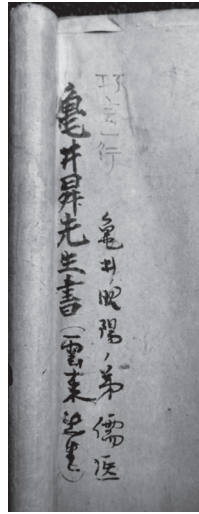 一行
亀井昭陽ノ弟儒医
亀井昇先生書(雲来先生)